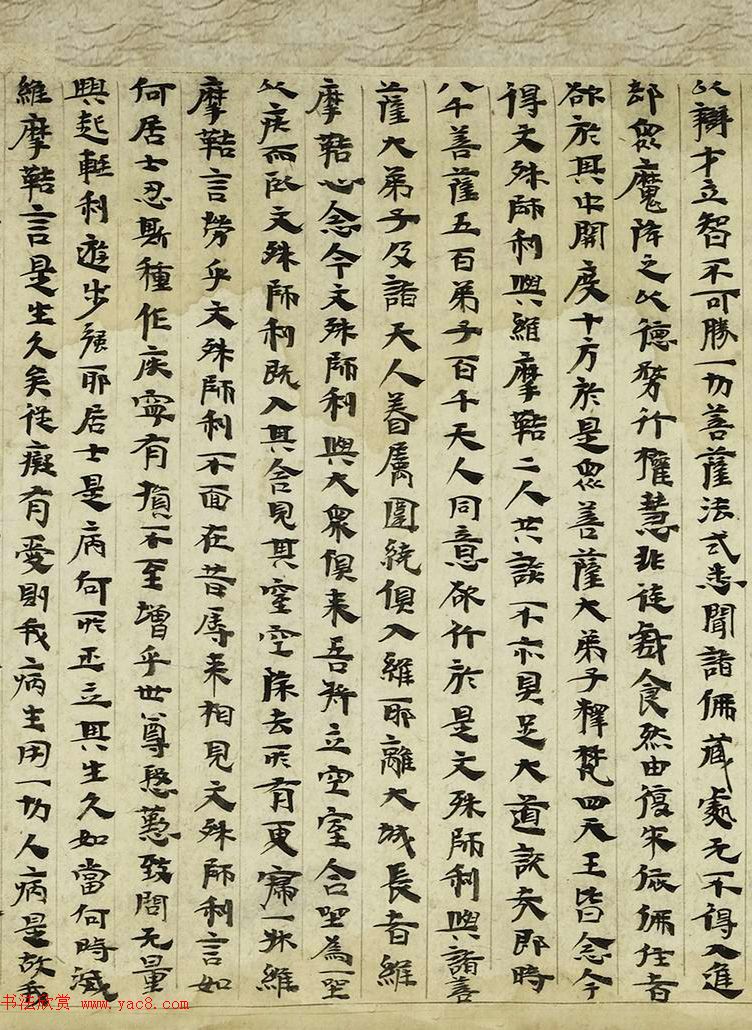 以辯才立智不可勝一切菩薩法式悉聞諸佛藏處无不得入進
却眾魔降之以德務行權慧非徒戲食然由復求依佛住者
欲於其中開度十方於是眾菩薩大弟子釋梵四天王皆念今
得文殊師利與維摩鞊二人共談不亦具足大道說矣即時
八千菩薩五百弟子百千天人同意欲行於是文殊師利與諸菩
薩大弟子及諸天人眷属圍繞俱入維耶離大城長者維
摩鞊心念今文殊師利與大衆俱来吾將立空室合坐為一坐
以疾而卧文殊師利既入其舍見其室空除去所有更寢一牀維
摩鞊言勞乎文殊師利不面在昔辱来相見文殊師利言如
何居士忍斯種作疾寧有損不至增乎世尊慇懃致問无量
興起輕利遊步强耶居士是病何所正立其生久如當何時滅
維摩鞊言是生久矣從癡有愛則我病生用一切人病是故我
书法欣赏 www.yac8.com